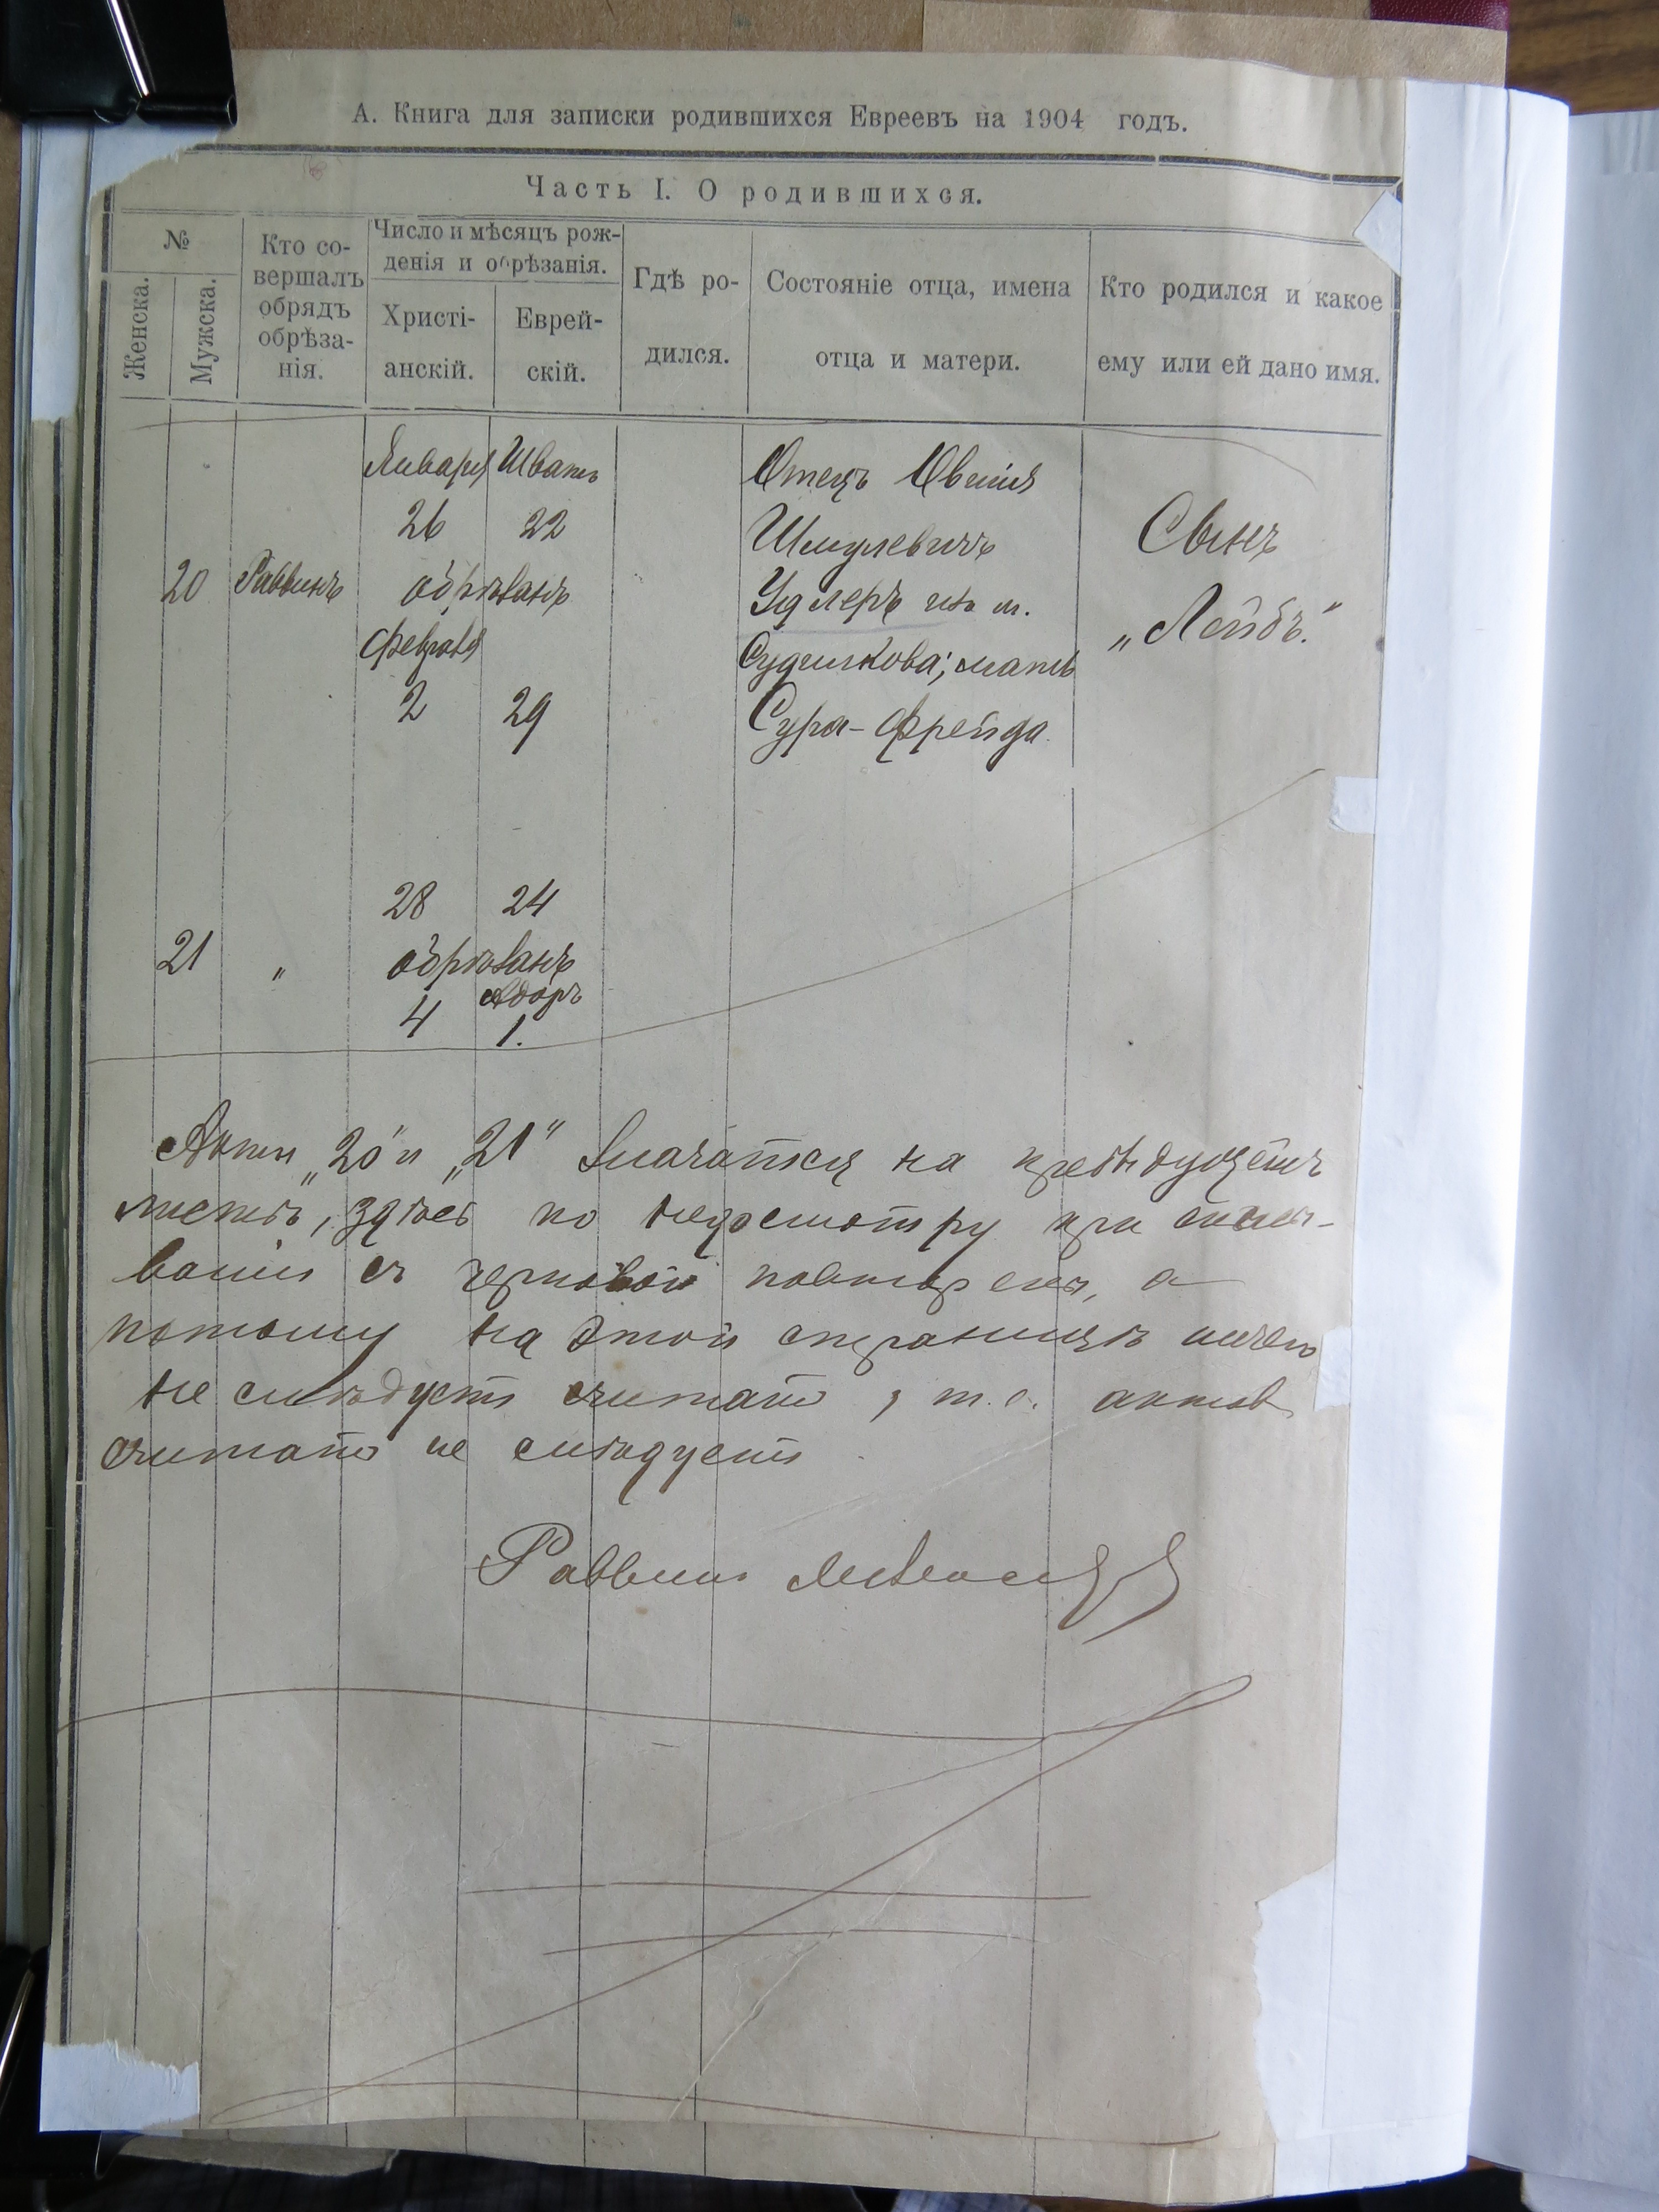 А. Книга для записки родившихся Евреевъ на 1904 годъ.
Часть I. О родившихся.
№
Женска.
Мужска.
Кто со-
вершалъ
обрядъ
обрѣза-
нія.
Число и мѣсяцъ рож-
денія и обрѣзанія.
Христі-
анскій.
Еврей-
скій.
Гдѣ ро-
дился.
Состояніе отца, имена
отца и матери.
Кто родился и какое
ему или ей дано имя.
Января Шватъ
26 22
20 Раввинъ обрѣзанъ
Февраля
2 29
Отецъ Овшія
Шмулевичъ
Удлеръ изъ м.
Судилкова; мать
Сура-Фрейда
Сынъ
„Лейбъ."
28 24
21 „ обрѣзанъ
Адаръ
4 1.
Акты „20" и „21" значатся на предыдущемъ
листѣ, здѣсь по недосмотру при списы-
ваніи съ черновой повторены, а
потому на этой страницѣ ничего
не слѣдуетъ считать, т.е. актовъ
считать не слѣдуетъ
Раввинъ